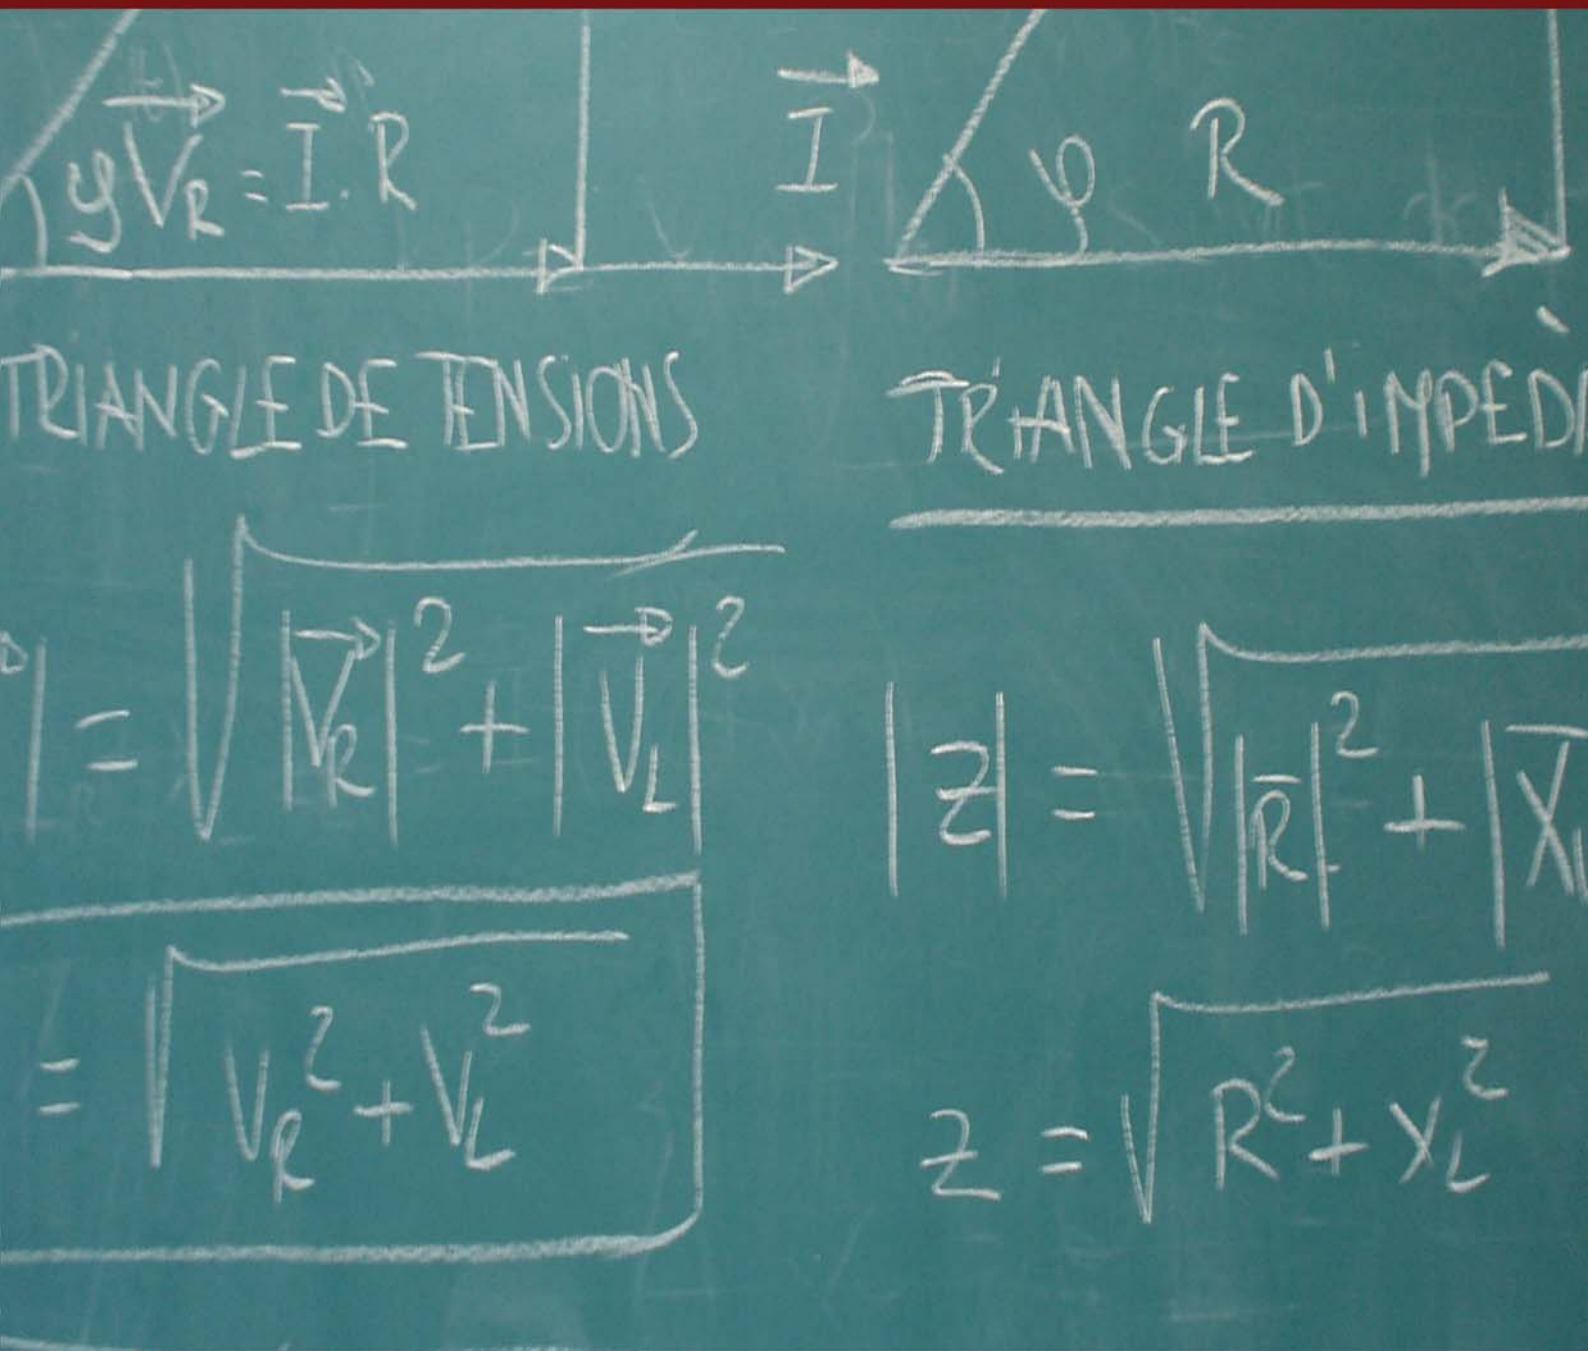 φ V⃗R = I⃗ . R
I⃗
φ R
TRIANGLE DE TENSIONS
TRIANGLE D'IMPEDÀ
| = √ |V⃗R|² + |V⃗L|²
|Z| = √ |R̅|² + |X̅L
= √ VR² + VL²
Z = √ R² + XL²